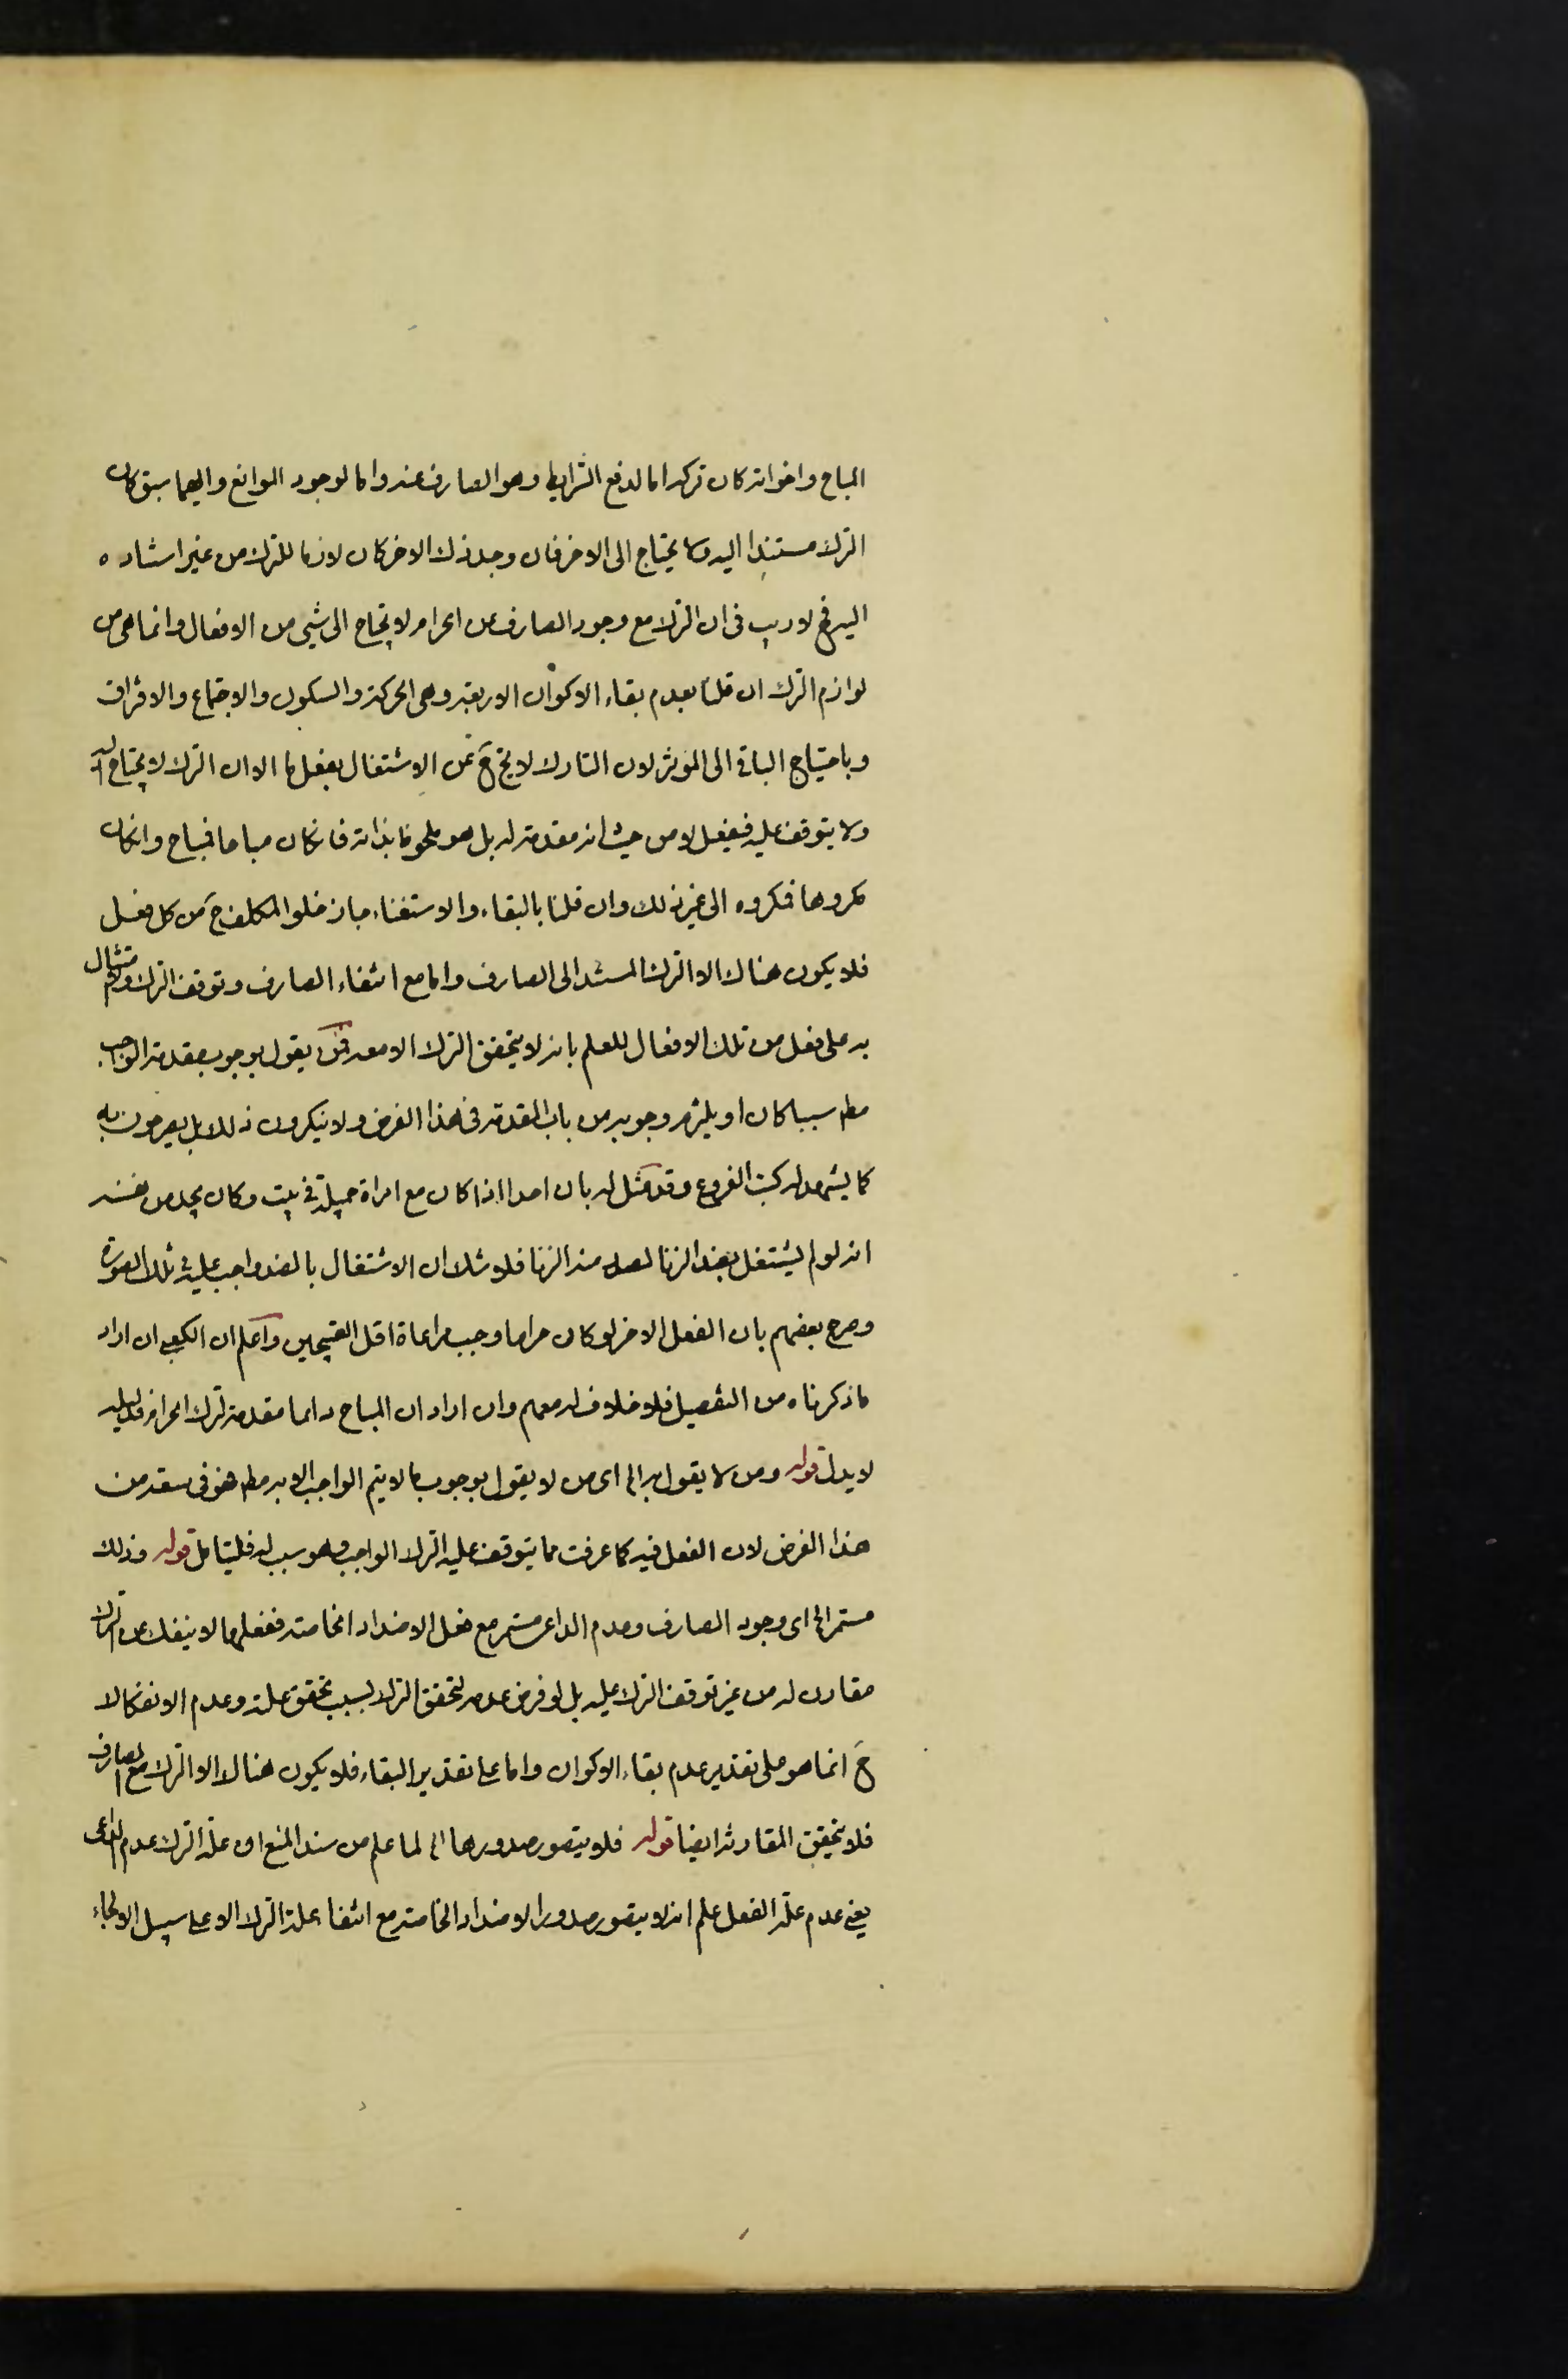 المباح واخواته كان تركه اما لدفع الشرايط وهو الصارف عنه واما لوجود الموانع وايهما سبق كان
الترك مستندا اليه ولا يحتاج الى الاخر فان وجد ذلك الاخر كان لازما للترك من غير استناده
اليه فح لا ريب فى ان الترك مع وجود الصارف عن الحرام لا يحتاج الى شئ من الافعال وانما هى من
لوازم الترك ان قلنا بعدم بقاء الاكوان الاربعة وهى الحركة والسكون والاجتماع والافتراق
وباحتياج الباقى الى المؤثر لان التارك لا يخ ح عن الاشتغال بفعل ما الا ان الترك لا يحتاج اليه
ولا يتوقف عليه فيفعل لا من حيث انه مقدمة له بل هو ملحوظ بذاته فانكان مباحا فمباح وانكان
مكروها فمكروه الى غير ذلك وان قلنا بالبقاء والاستغناء جاز خلو المكلف ح من كل فعل
فلا يكون هناك الا الترك المستند الى الصارف واما مع انتفاء الصارف وتوقف الترك والامتثال
به على فعل من تلك الافعال للعلم بانه لا يتحقق الترك الا معه فمن يقول بوجوب مقدمة الواجب
مط سببا كان او يلتزم وجوبه من باب المقدمة فى هذا الفرض ولا ينكرون ذلك بل يصرحون به
كما يشهد له كتب الفروع وقد مثل له بان احدا اذا كان مع امراة جميلة فى بيت وكان يجد من نفسه
انه لو لم يشتغل بضد الزنا لصدر منه الزنا فلا شك ان الاشتغال بالضد واجب عليه فى تلك الصورة
وصرح بعضهم بان الفعل الاخر لو كان حراما وجب مراعاة اقل القبيحين واعلم ان الكعبى ان اراد
ما ذكرناه من التفصيل فلا خلاف له معهم وان اراد ان المباح دائما مقدمة لترك الحرام فدليله
لا يدل قوله ومن لا يقول به الخ اى من لا يقول بوجوب ما لا يتم الواجب الا به مط فهو فى سعة من
هذا الفرض لان الفعل فيه كما عرفت مما يتوقف عليه الترك الواجب وهو سبب له فليتامل قوله وذلك
مستمر الخ اى وجود الصارف وعدم الداعى مستمر مع فعل الاضداد الخاصة ففعلها لا ينفك عن الترك
مقارن له من غير توقف الترك عليه بل لو فرض عدمه لتحقق الترك بسبب تحقق علته وعدم الانفكاك
ح انما هو على تقدير عدم بقاء الاكوان واما على تقدير البقاء فلا يكون هناك الا الترك مع الصارف
فلا يتحقق المقارنة ايضا قوله فلا يتصور صدورها الخ لما علم من سند المنع ان علة الترك عدم الداعى
يعنى عدم علة الفعل علم انه لا يتصور صدور الاضداد الخاصة مع انتفاء علة الترك الا على سبيل الالجاء